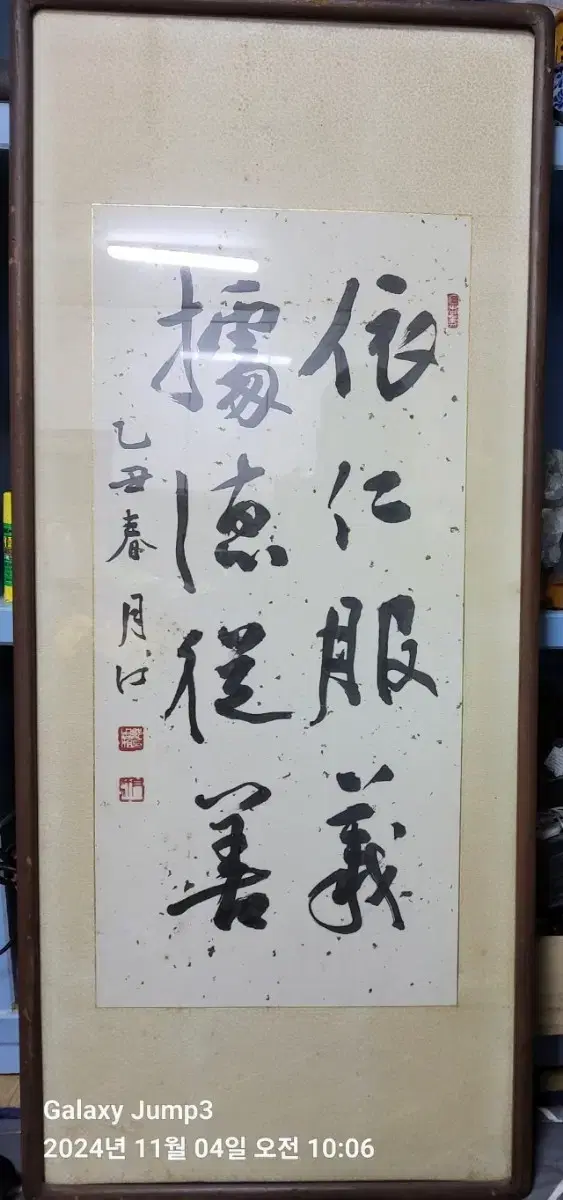 依仁服義
據德從善
乙丑春 月汀
Galaxy Jump3
2024년 11월 04일 오전 10:06